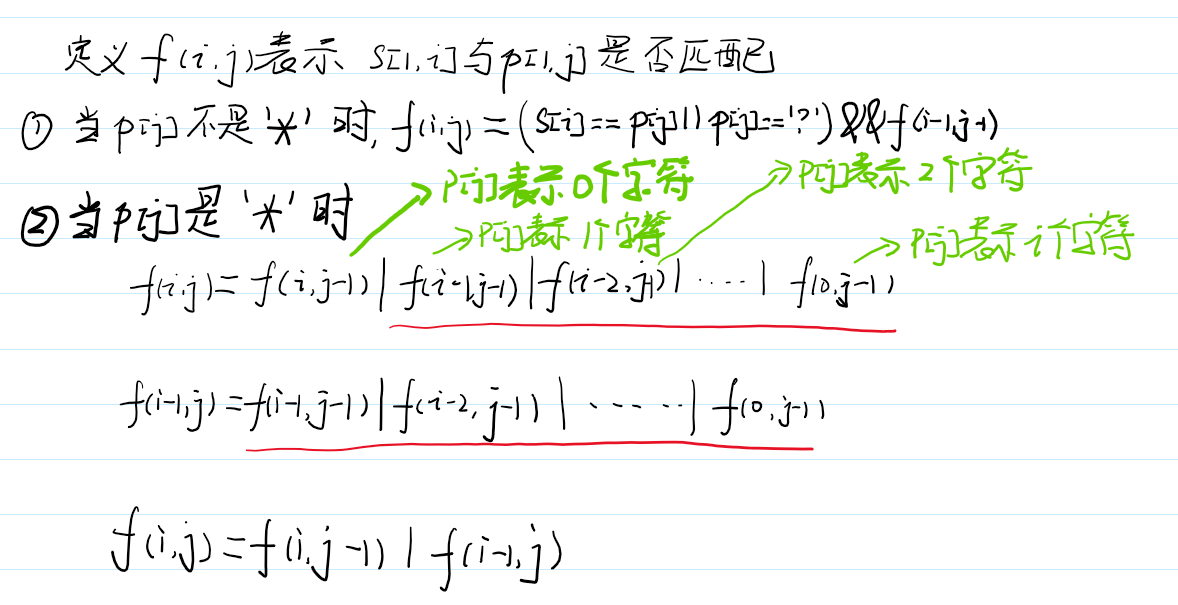 定义 f(i,j)表示 s[1,i]与p[1,j]是否匹配
① 当p[j]不是'*'时, f(i,j) = (s[i]==p[j]||p[j]=='?')&&f(i-1,j-1)
p[j]表示0个字符
p[j]表示2个字符
② 当p[j]是'*'时
p[j]表示1个字符
p[j]表示i个字符
f(i,j) = f(i,j-1) | f(i-1,j-1) | f(i-2,j-1) | ····· | f(0,j-1)
f(i-1,j) = f(i-1,j-1) | f(i-2,j-1) | ······ | f(0,j-1)
f(i,j) = f(i,j-1) | f(i-1,j)